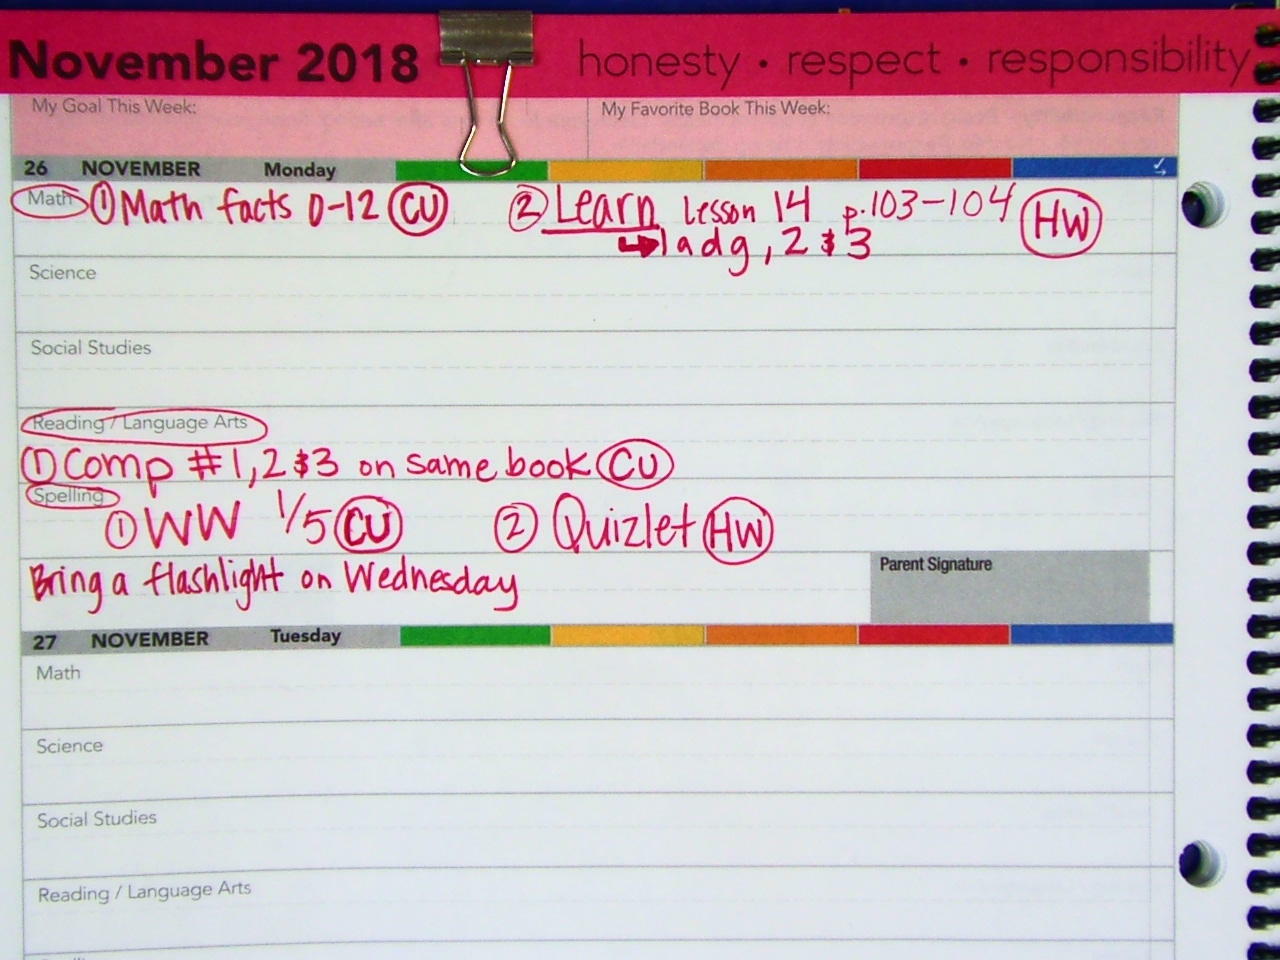 November 2018 honesty • respect • responsibility
My Goal This Week: My Favorite Book This Week:
26 NOVEMBER Monday
Math ① Math facts 0-12 CU ② Learn Lesson 14 p. 103-104 HW
→ 1 a d g, 2 & 3
Science
Social Studies
Reading / Language Arts
① Comp # 1, 2 & 3 on same book CU
Spelling
① WW 1/5 CU ② Quizlet HW
Bring a flashlight on Wednesday Parent Signature
27 NOVEMBER Tuesday
Math
Science
Social Studies
Reading / Language Arts